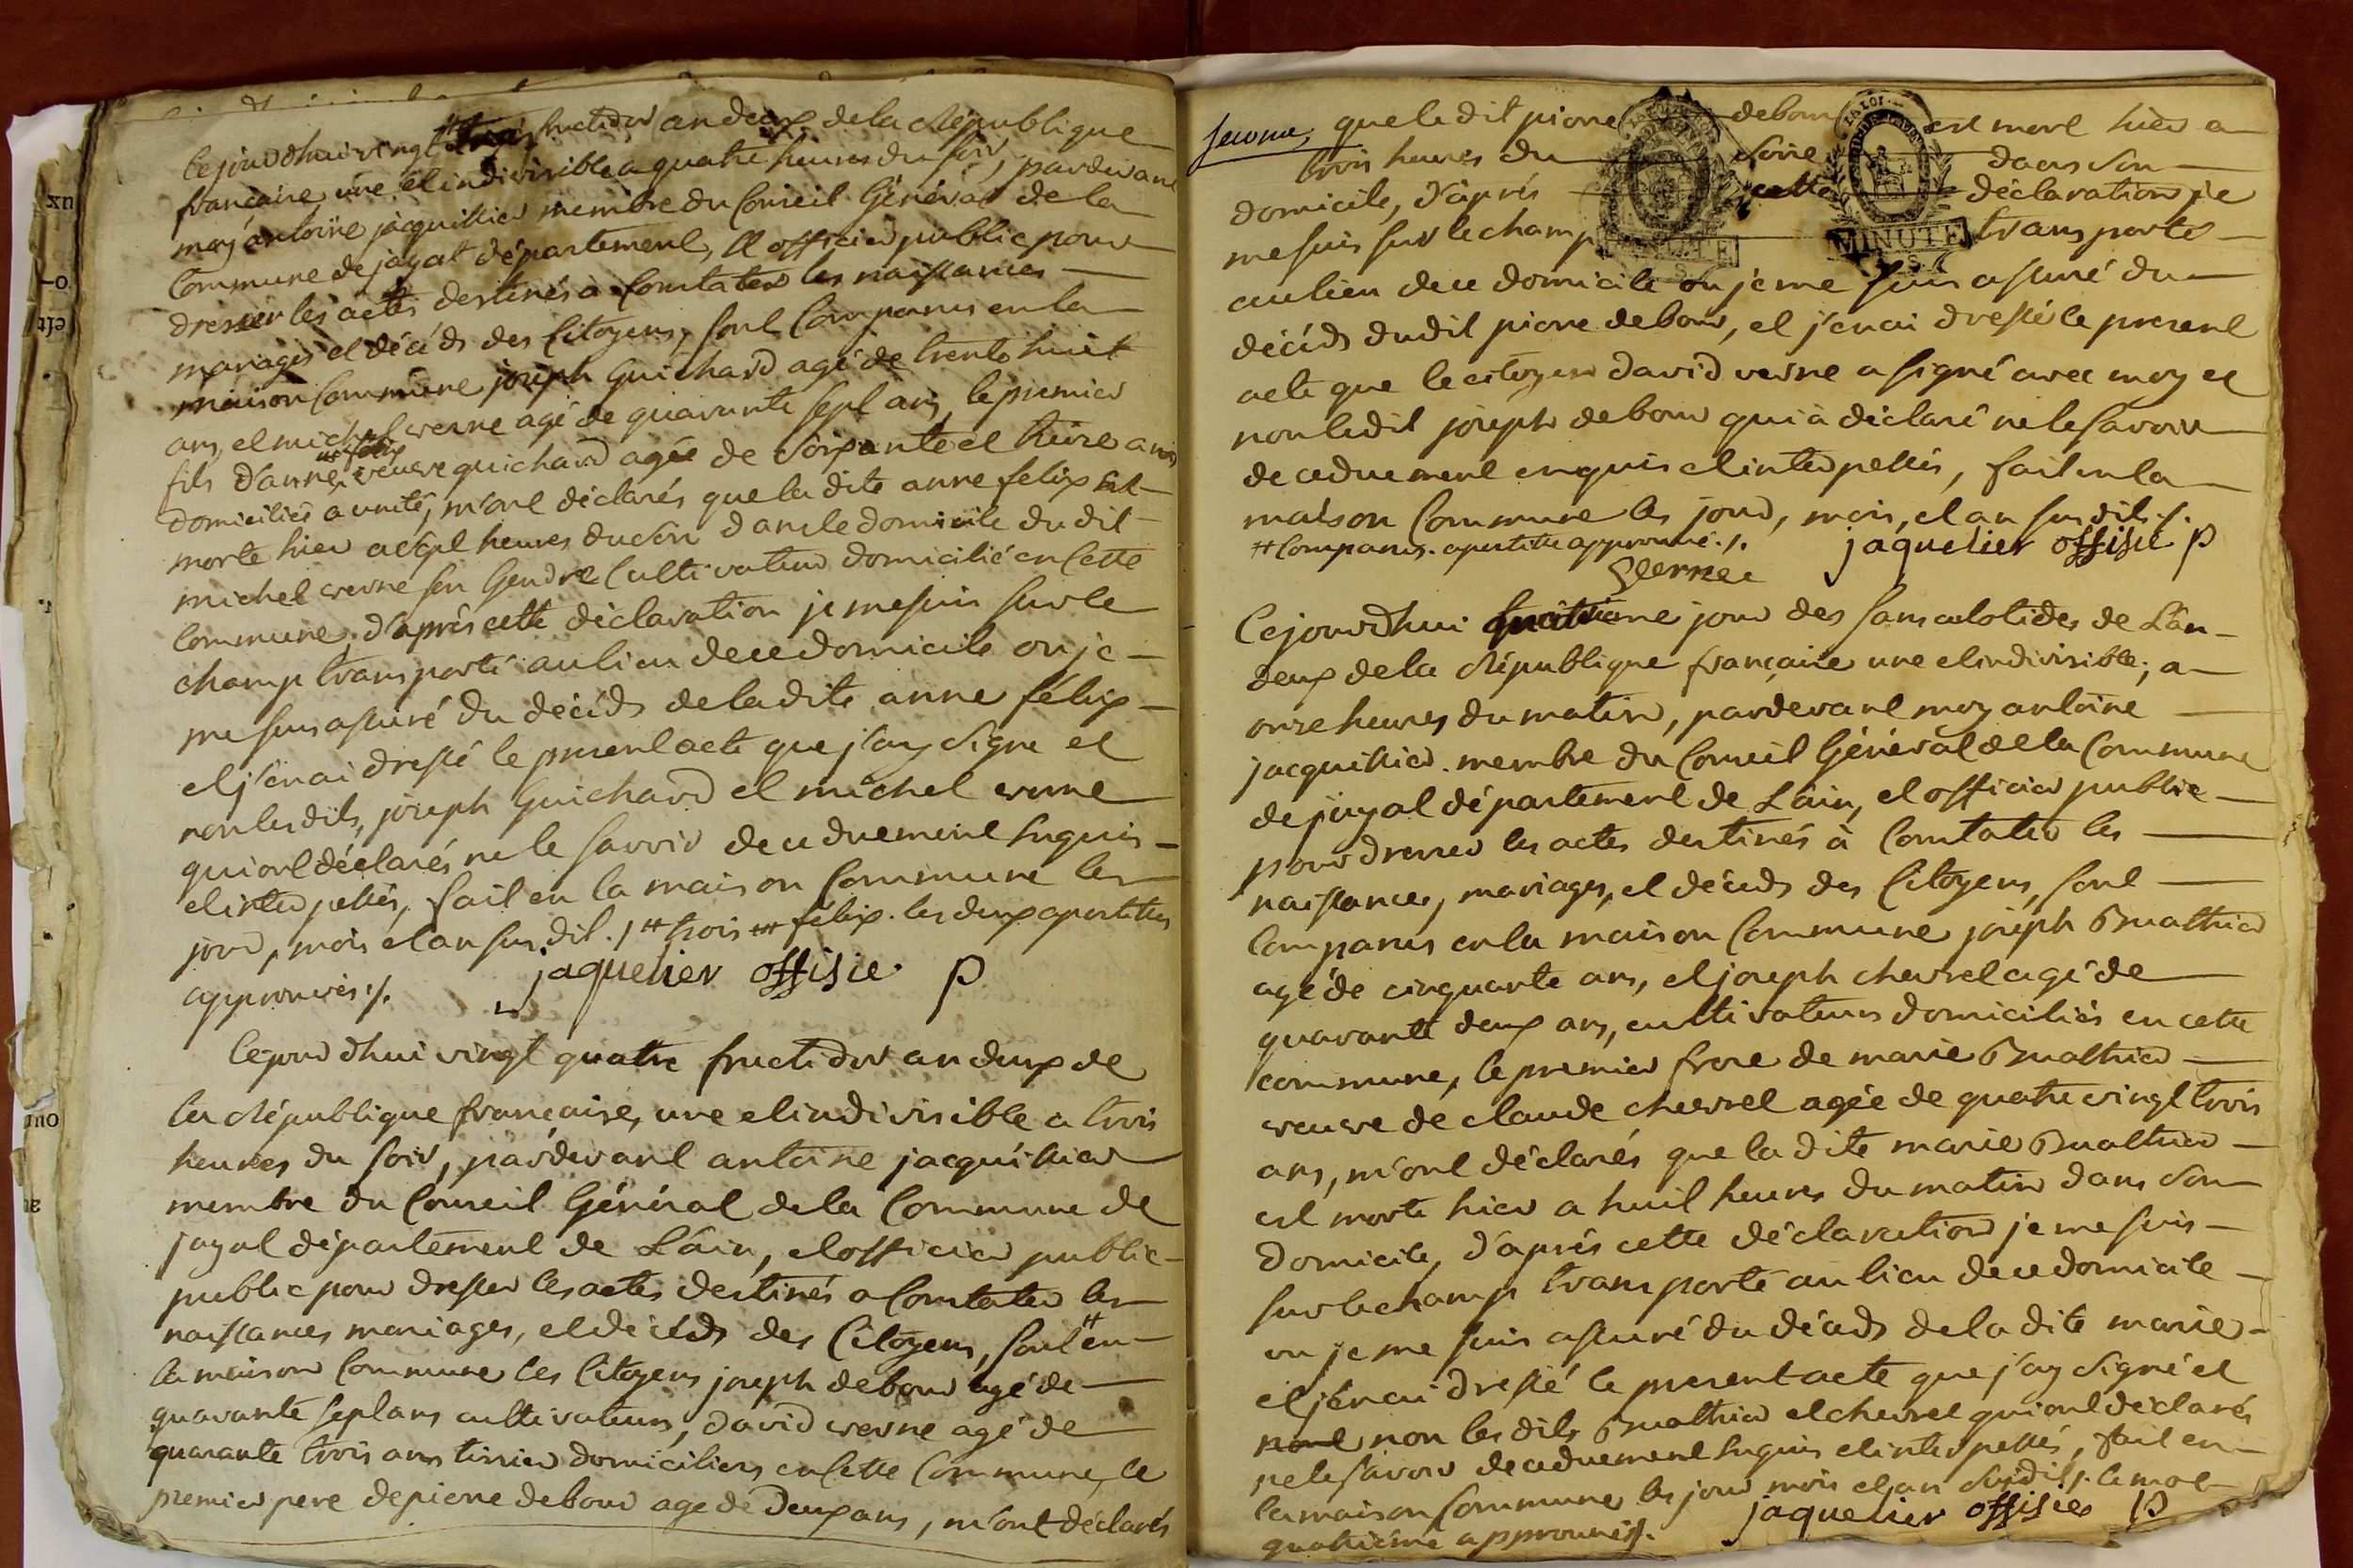 Cejourdhui vingt trois fructidor an deux de la République
française une et indivisible a quatre heures du soir, pardevant
moy antoine jacquillier membre du Conseil Général de la
Commune de jayat département, et officier public pour
dresser les actes destinés a Constater les naissances
mariages et décéds des Citoyens, sont Comparus en la
maison Commune joseph Guichard agé de trente huit
ans, et michel verne agé de quarante sept ans, le premier
fils d'anne félix veuve guichard agée de soixante et treize ans
domiciliés, m'ont déclarés que la dite anne felix est
morte hier a sept heures du soir dans le domicile du dit
michel verne son Gendre Cultivateur domicilié en Cette
Commune, d'après cette déclaration je me suis sur le
champ transporté au lieu de ce domicile ou je
me suis assuré du décéds de la dite anne félix
et j'en ai dressé le present acte que j'ay signe et
non les dits, joseph Guichard et michel verne
qui ont déclarés ne le savoir de ce duement enquis
et interpellés, fait en la maison Commune les
jour, mois et an sus dit ./ # trois ## félix. les deux apostilles
approuvées ./.
jaquelier offisie p
Cejourdhui vingt quatre fructidor an deux de
la République française, une et indivisible a trois
heures du soir, pardevant antoine jacquillier
membre du Conseil Général de la Commune de
jayat département de L'ain, et officier public
public pour dresser les actes destinés a Constater les
naissances mariages, et décéds des Citoyens, sont # en
la maison Commune les Citoyens joseph debour agé de
quarante sept ans cultivateurs, david verne agé de
quarante trois ans tissier domiciliers en Cette Commune, le
premier pere de pierre debour age de deux ans, m'ont déclarés
que le dit pierre debour est mort hier a
trois heures du soir dans son
domicile, d'après cette déclaration je
me suis sur le champ transporté
MINUTE
au lieu de ce domicile ou je me suis assuré du
décéds dudit pierre debour, et j'en ai dressé le present
acte que le citoyen david verne a signé avec moy et
non ledit joseph debour qui a déclaré ne le savoir
de ce duement enquis et interpellés, fait en la
maison Commune les jour, mois, et an sus dits ./.
# Comparus. apostille approuvé ./. jaquelier offisie p
Verne
Cejourdhui quatrieme jour des sansculotides de L'an
deux de la République française une et indivisible, a
onze heures du matin, pardevant moy antoine
jacquillier membre du Conseil Général de la Commune
de jayat département de L'ain, et officier public
pour dresser les actes destinés à Constater les
naissances, mariages, et décéds des Citoyens, sont
Comparus en la maison Commune joseph Bmathier
agé de cinquante ans, et joseph chevrel agé de
quarante deux ans, cultivateurs domiciliés en cette
commune, le premier frere de marie Bmathier
veuve de claude chevrel agée de quatre vingt trois
ans, m'ont déclarés que la dite marie Bmathier
est morte hier a huit heures du matin dans son
domicile, d'après cette déclaration je me suis
sur le champ transporté au lieu de ce domicile
ou je me suis assuré du décéds de la dite marie
et j'en ai dressé le present acte que j'ay signé et
non les dits Bmathier et chevrel qui ont déclarés
ne le savoir de ce duement enquis et interpellés, fait en
la maison Commune les jour mois et an susdit ./. le mot
quatrieme approuvé ./. jaquelier offisier p